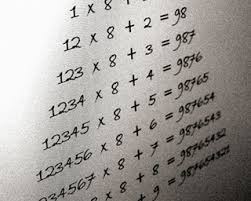 1 × 8
12 × 8 + 2 = 98
123 × 8 + 3 = 987
1234 × 8 + 4 = 9876
12345 × 8 + 5 = 98765
123456 × 8 + 6 = 987654
234567 × 8 + 7 = 9876543
× 8 + 8 = 98765432
+ 9 = 987654321